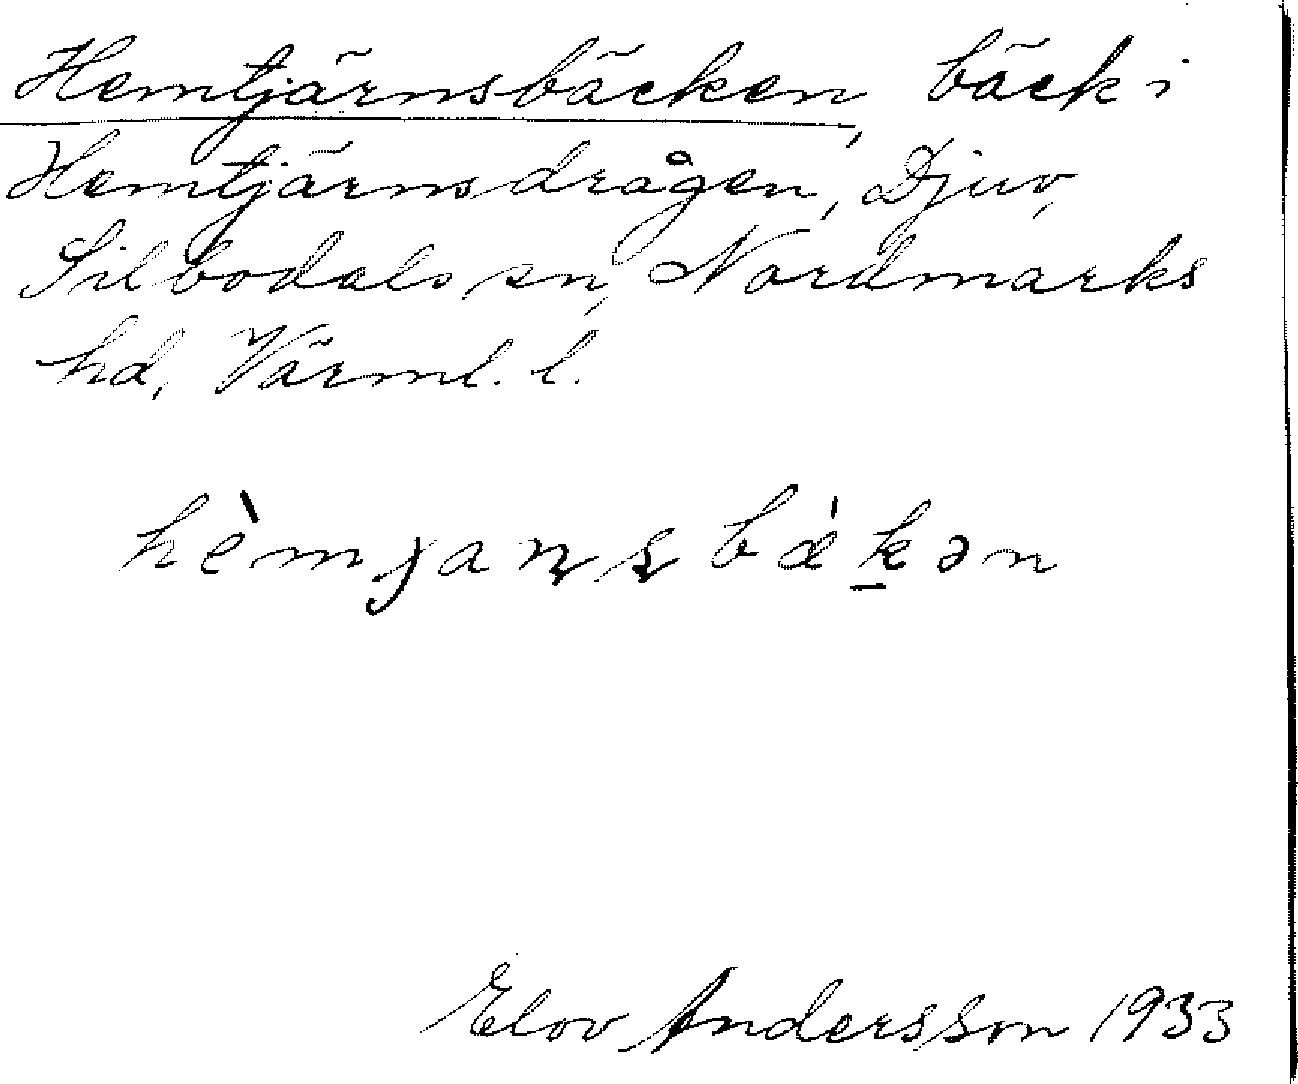 Hemtjärnsbäcken, bäck i
Hemtjärnsdrågen, Djuv,
Silbodals sn, Nordmarks
hd, Värml. l.
hèmȷaɳʂbǽk̠ən
Elov Andersson 1933